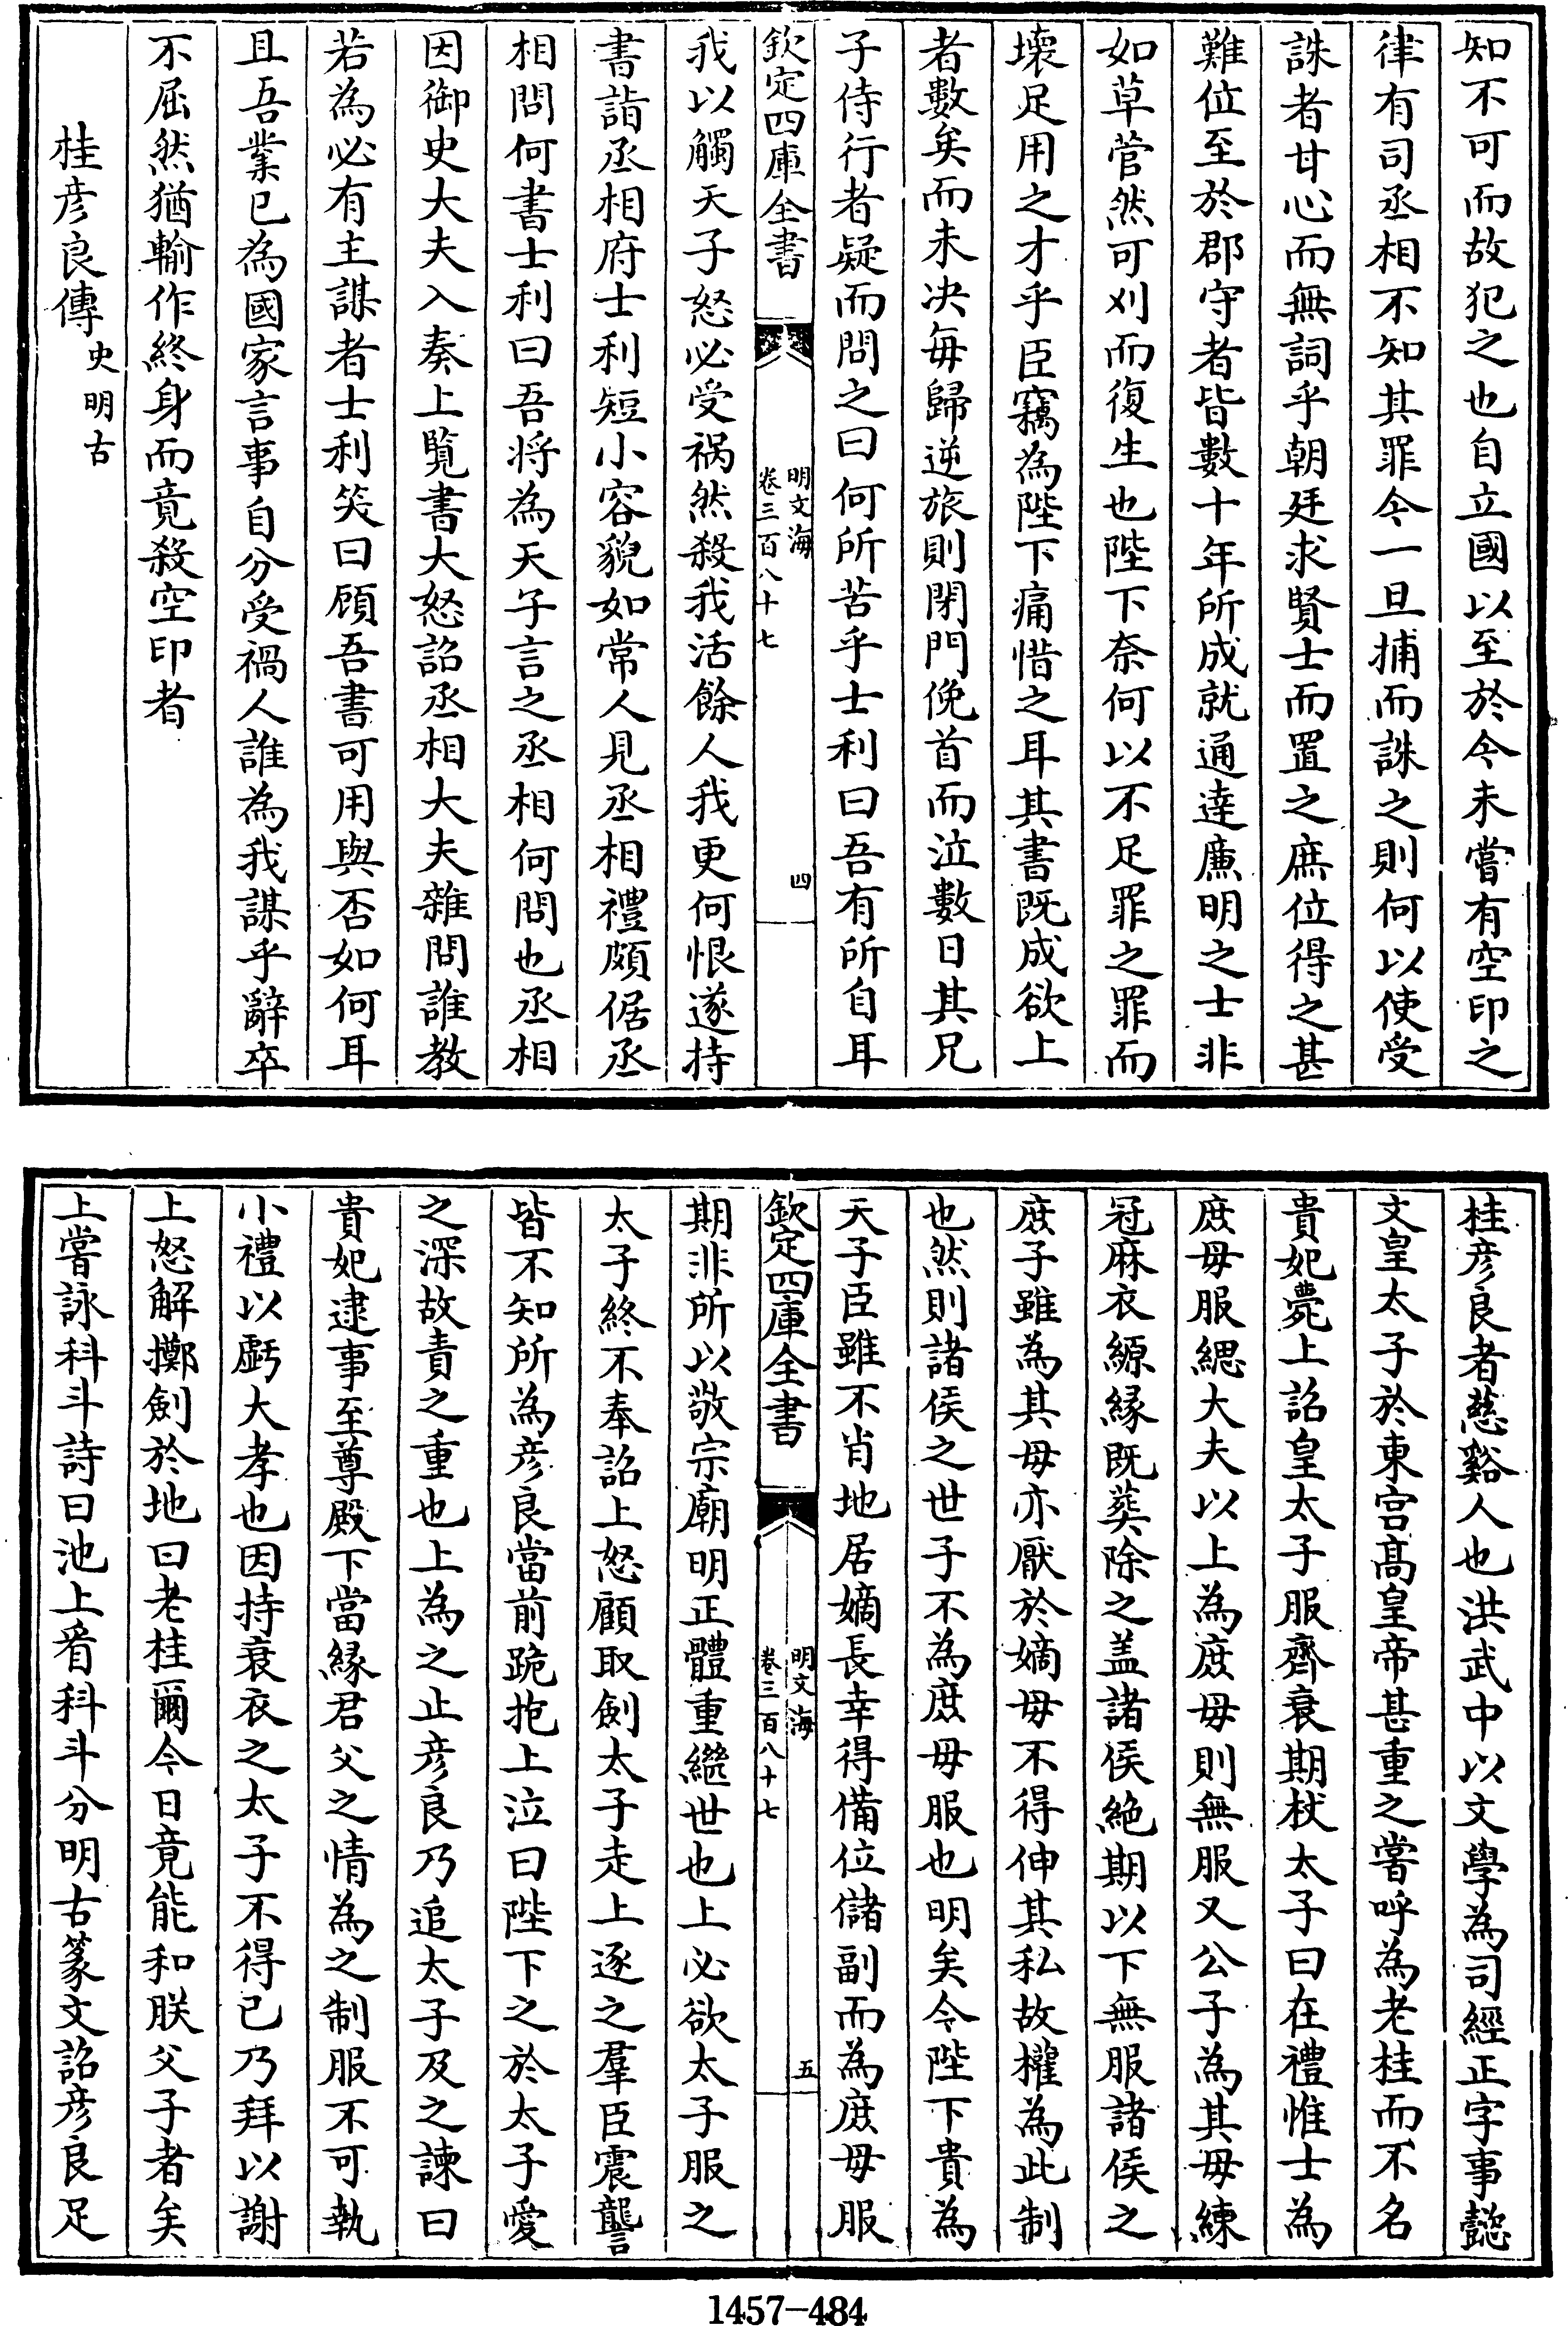 知不可而故犯之也自立國以至於今未嘗有空印之
律有司丞相不知其罪今一旦捕而誅之則何以使受
誅者甘心而無詞乎朝廷求賢士而置之庶位得之甚
難位至於郡守者皆數十年所成就通達廉明之士非
如草菅然可刈而復生也陛下奈何以不足罪之罪而
壞足用之才乎臣竊為陛下痛惜之耳其書既成欲上
者數矣而未決每歸逆旅則閉門俛首而泣數日其兄
子侍行者疑而問之曰何所苦乎士利曰吾有所自耳
欽定四庫全書
明文海
卷三百八十七
四
我以觸天子怒必受禍然殺我活餘人我更何恨遂持
書詣丞相府士利短小容貌如常人見丞相禮頗倨丞
相問何書士利曰吾將為天子言之丞相何問也丞相
因御史大夫入奏上覽書大怒詔丞相大夫雜問誰教
若為必有主謀者士利笑曰顧吾書可用與否如何耳
且吾業已為國家言事自分受禍人誰為我謀乎辭卒
不屈然猶輸作終身而竟殺空印者
桂彦良傳 史明古
桂彦良者慈谿人也洪武中以文學為司經正字事懿
文皇太子於東宫髙皇帝甚重之嘗呼為老桂而不名
貴妃薨上詔皇太子服齊衰期杖太子曰在禮惟士為
庶母服緦大夫以上為庶母則無服又公子為其母練
冠麻衣縓緣既葬除之盖諸侯絶期以下無服諸侯之
庶子雖為其母亦厭於嫡母不得伸其私故權為此制
也然則諸侯之世子不為庶母服也明矣今陛下貴為
天子臣雖不肖地居嫡長幸得備位儲副而為庶母服
欽定四庫全書
明文海
卷三百八十七
五
期非所以敬宗廟明正體重繼世也上必欲太子服之
太子終不奉詔上怒顧取劍太子走上逐之羣臣震讋
皆不知所為彦良當前跪抱上泣曰陛下之於太子愛
之深故責之重也上為之止彦良乃追太子及之諫曰
貴妃逮事至尊殿下當緣君父之情為之制服不可執
小禮以虧大孝也因持衰衣之太子不得已乃拜以謝
上怒解擲劍於地曰老桂爾今日竟能和朕父子者矣
上嘗詠科斗詩曰池上看科斗分明古篆文詔彦良足
1457-484